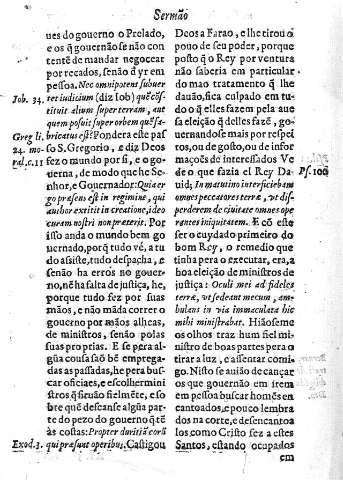 Sermão
ues do governo o Prelado,
e os q̃ governão se não con
tentẽ de mandar negocear
por recados, senão d'yr em
pessoa. Nec omnipotens subver
Job. 34.
tet iudicium (diz Iob) quẽ cõs-
tituit alium super terram, aut
quem posuit super orbem quẽ fa-
Greg li.
bricatus est? Pondera este pas
24. mo-
so S. Gregorio, e diz Deos
ral. c. 11
fez o mundo por si, e o go-
verna, de modo que he Se-
nhor, e Governador: Quia er-
go præsens est in regimine, qui
author extitit in creatione, ideo
curam nostri non præterit. Por
isso anda o mundo bem go
vernado, porq̃ tudo vè, a tu
do assiste, tudo despacha, e
senão ha erros no gover-
no, nẽ ha falta de justiça, he,
porque tudo fez por suas
mãos, e não mãda correr o
governo por mãos alheas,
de ministros, senão polas
suas proprias. E se pera al-
gũa cousa saõ bẽ emprega-
das as passadas, he pera bus-
car oficiaes, e escolher mini
stros q̃ sirvão fielmẽte, e so
bre quẽ descanse algũa par
te do pezo do governo q̃ tẽ
às costas: Propter duritiã corũ
Exod. 3.
qui præsunt operibus. Castigou
Deos a Farao, e lhe tirou o
pouo de seu poder, porque
posto q̃ o Rey por ventura
não saberia em particular
do mao tratamento q̃ lhe
davão, fica culpado em tu-
do o q̃ elles fazem pela aue
sa eleição q̃ delles fazẽ, go-
vernandose mais por respei
tos, ou de gosto, ou de infor
maçoẽs de interessados Ve
de o que fazia el Rey Da
Ps. 100
vid; In matutino interficiebam
omnes peccatores terræ, ut dis-
perderem de civitate omnes ope
rantes iniquitatem. E cõ este
ser o cuydado primeiro do
bom Rey, o remedio que
tinha pera o executar, era, a
boa eleição de ministros de
justiça: Oculi mei ad fideles
terræ, ut sedeant mecum, am-
bulans in via immaculata hic
mihi ministrabat. Hiãose me
os olhos traz hum fiel mi-
nistro de boas partes pera o
tirar a luz, e assentar comi-
go. Nisto se avião de cançar
os que governão em irem
em pessoa buscar homẽs en
cantoados, e pouco lembra
dos na corte, e desencantoa
los, como Cristo fez a estes
Santos, estando ocupados
em